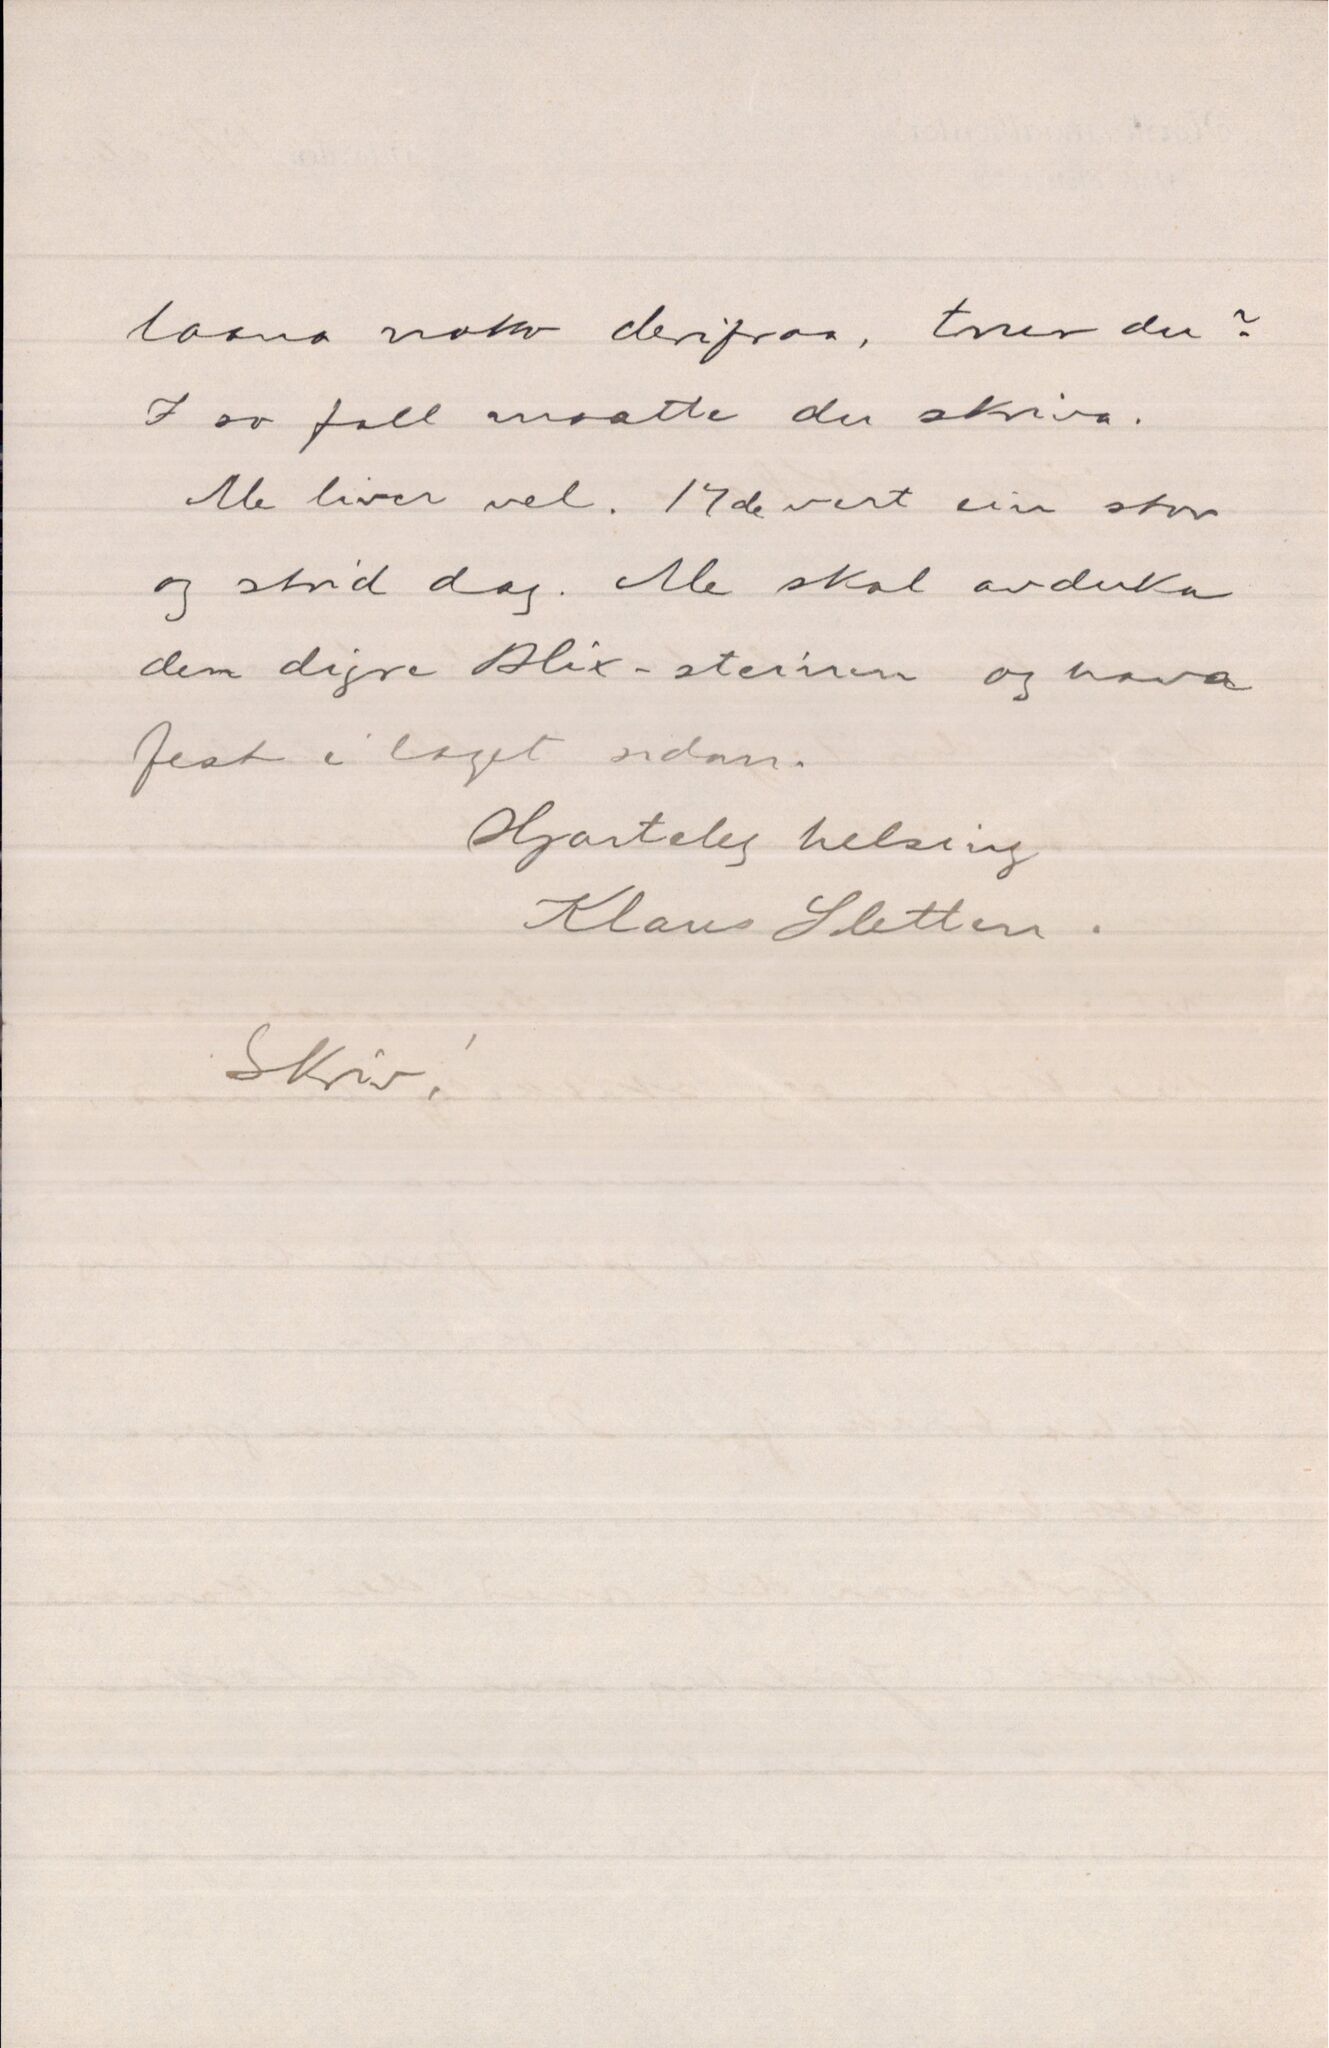 laana noko derifraa, trur du?
I so fall maatte du skriva.
Me liver vel. 17de vert ein stor
og strid dag. Me skal avduka
den digre Blix-steinen og hava
fest i laget sidan.
Hjarteleg helsing
Klaus Sletten.
Skriv!